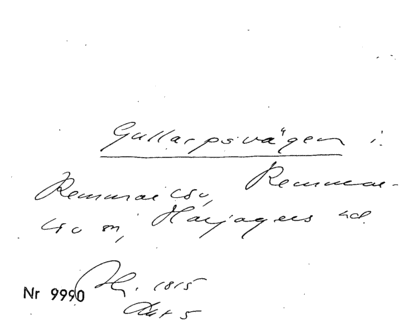 Gullarpsvägen i
Remmarlöv, Remmar-
löv m, Harjagers hd.
1815
Nr 9990
Akt 5